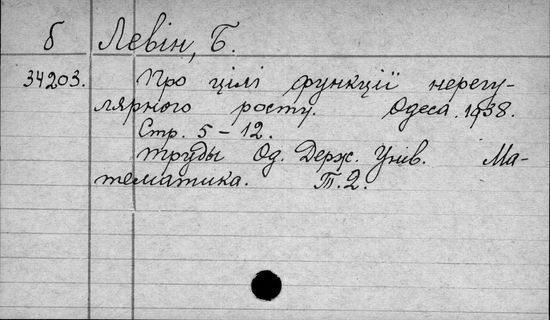 б Левін, Б.
34203. Про цілі функції нерегу-
лярного росту. Одеса. 1938.
Стр. 5-12.
Труды Од. Держ. Унів. Ма-
тематика. Т. 2.